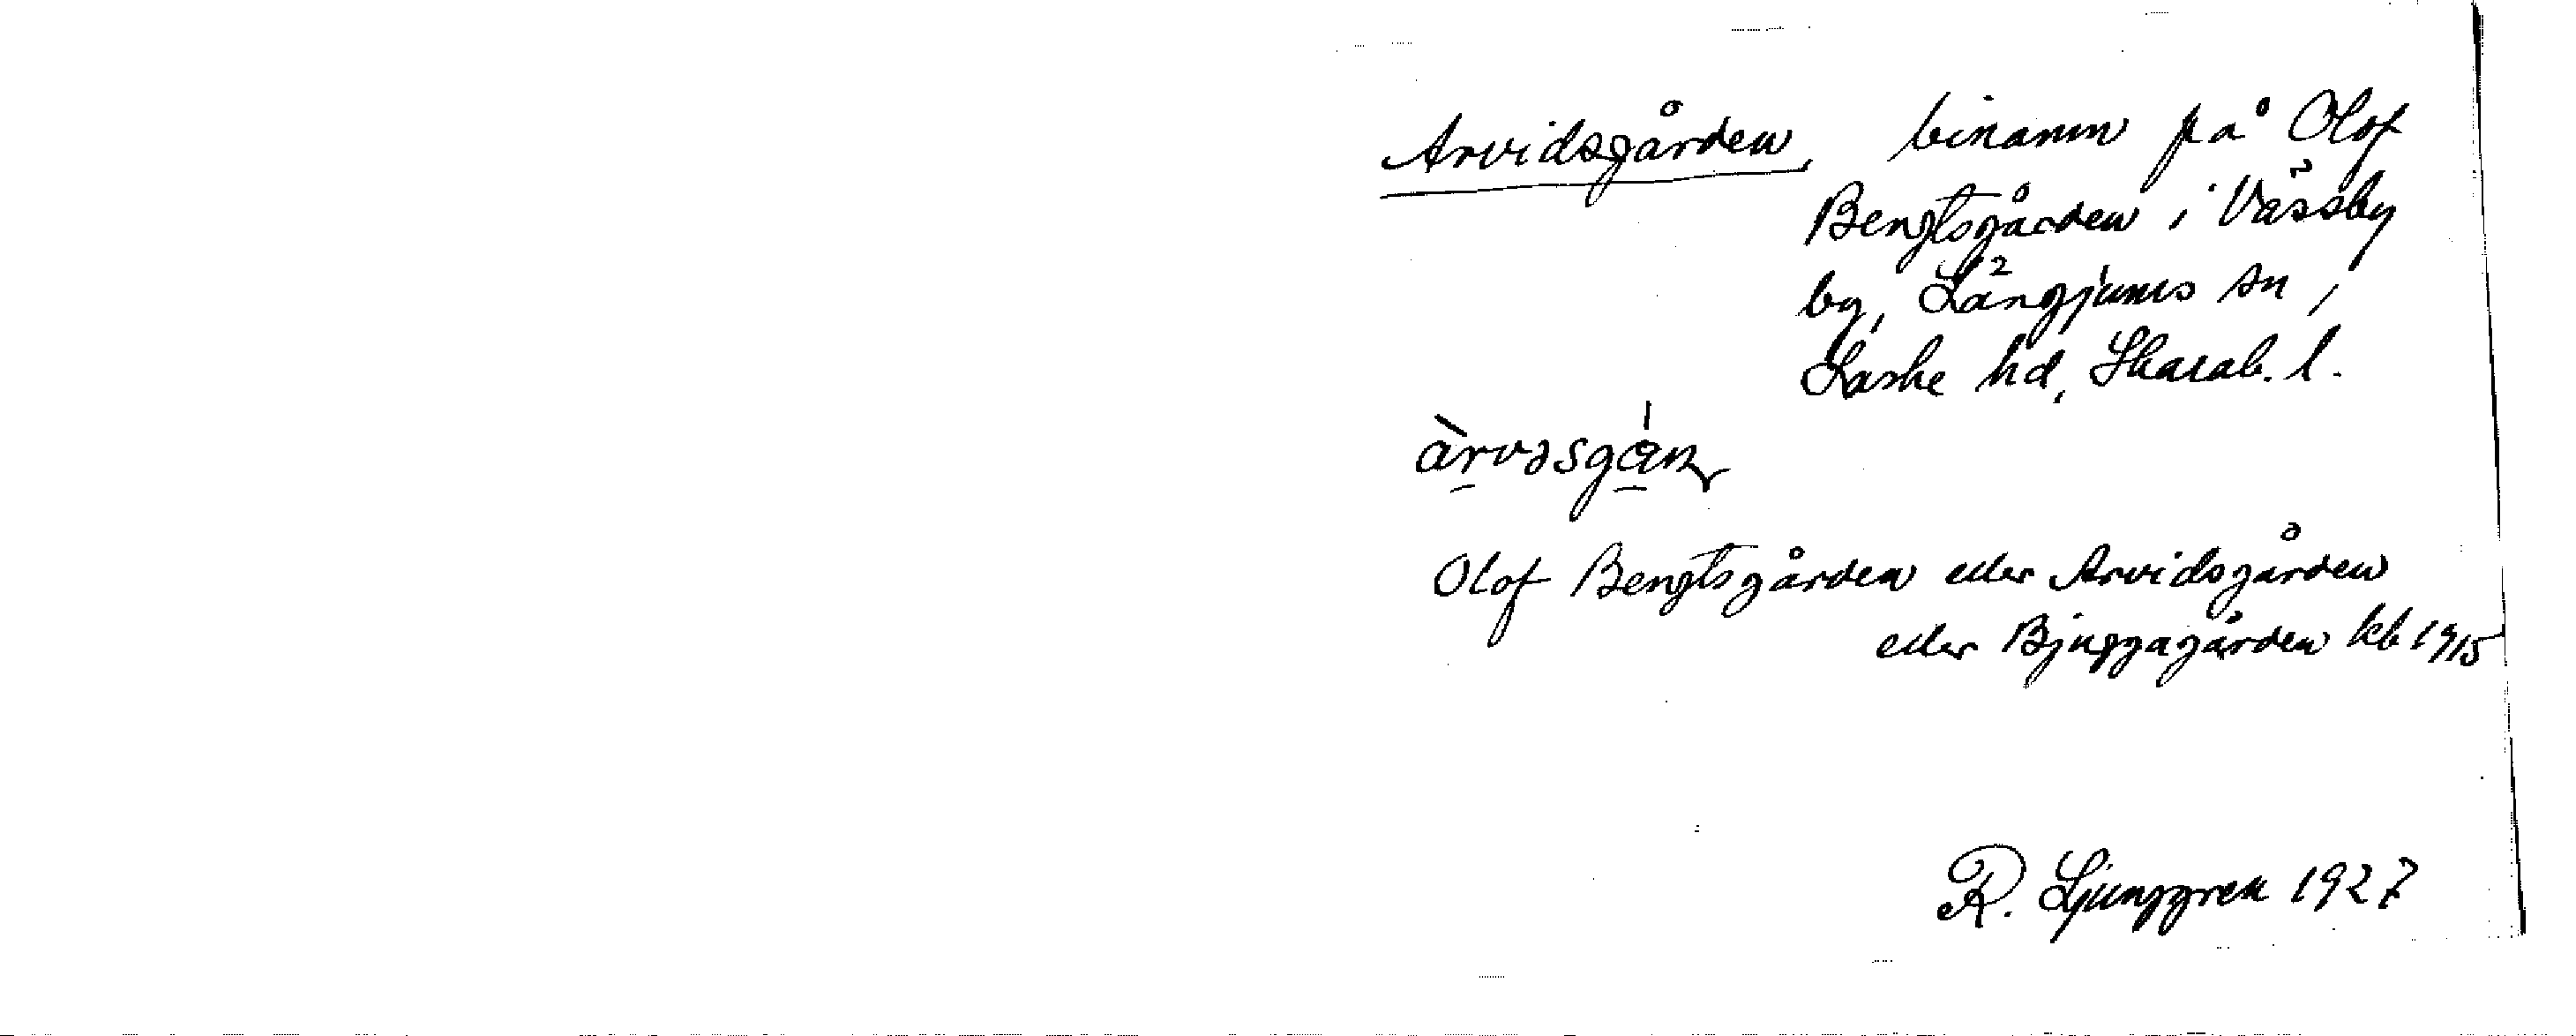 Arvidsgården, binamn på Olof
Bengtsgården i Vässby
by, Långjums sn,
Laske hd, Skarab. l.
Olof Bengtsgården eller Arvidsgården
eller Bjuggagården kb 1915
R. Ljunggren 1927